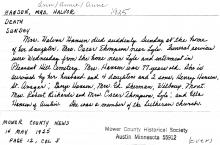 Ann/Anna/Anne
HANSON, MRS. HALVOR 1925
DEATH
SUNDAY
Mrs. Halvor Hanson died suddenly Sunday at the home
of her daughter, Mrs. Oscar Thompson near Lyle. Funeral services
were Wednesday from the home near Lyle and interment in
Pleasant Hill Cemetery. Mrs. Hanson was 77 years old. She is
survived by her husband and 4 daughters and 2 sons, Henry Hanson,
Mrs. Oscar Thompson, Lyle; and
Hanson of Austin. She was a member of the Lutheran church.
MOWER COUNTY NEWS
14 MAY 1925
PAGE 12, COL 5
Mower County Historical Society
Austin Minnesota 55912
(OVER)